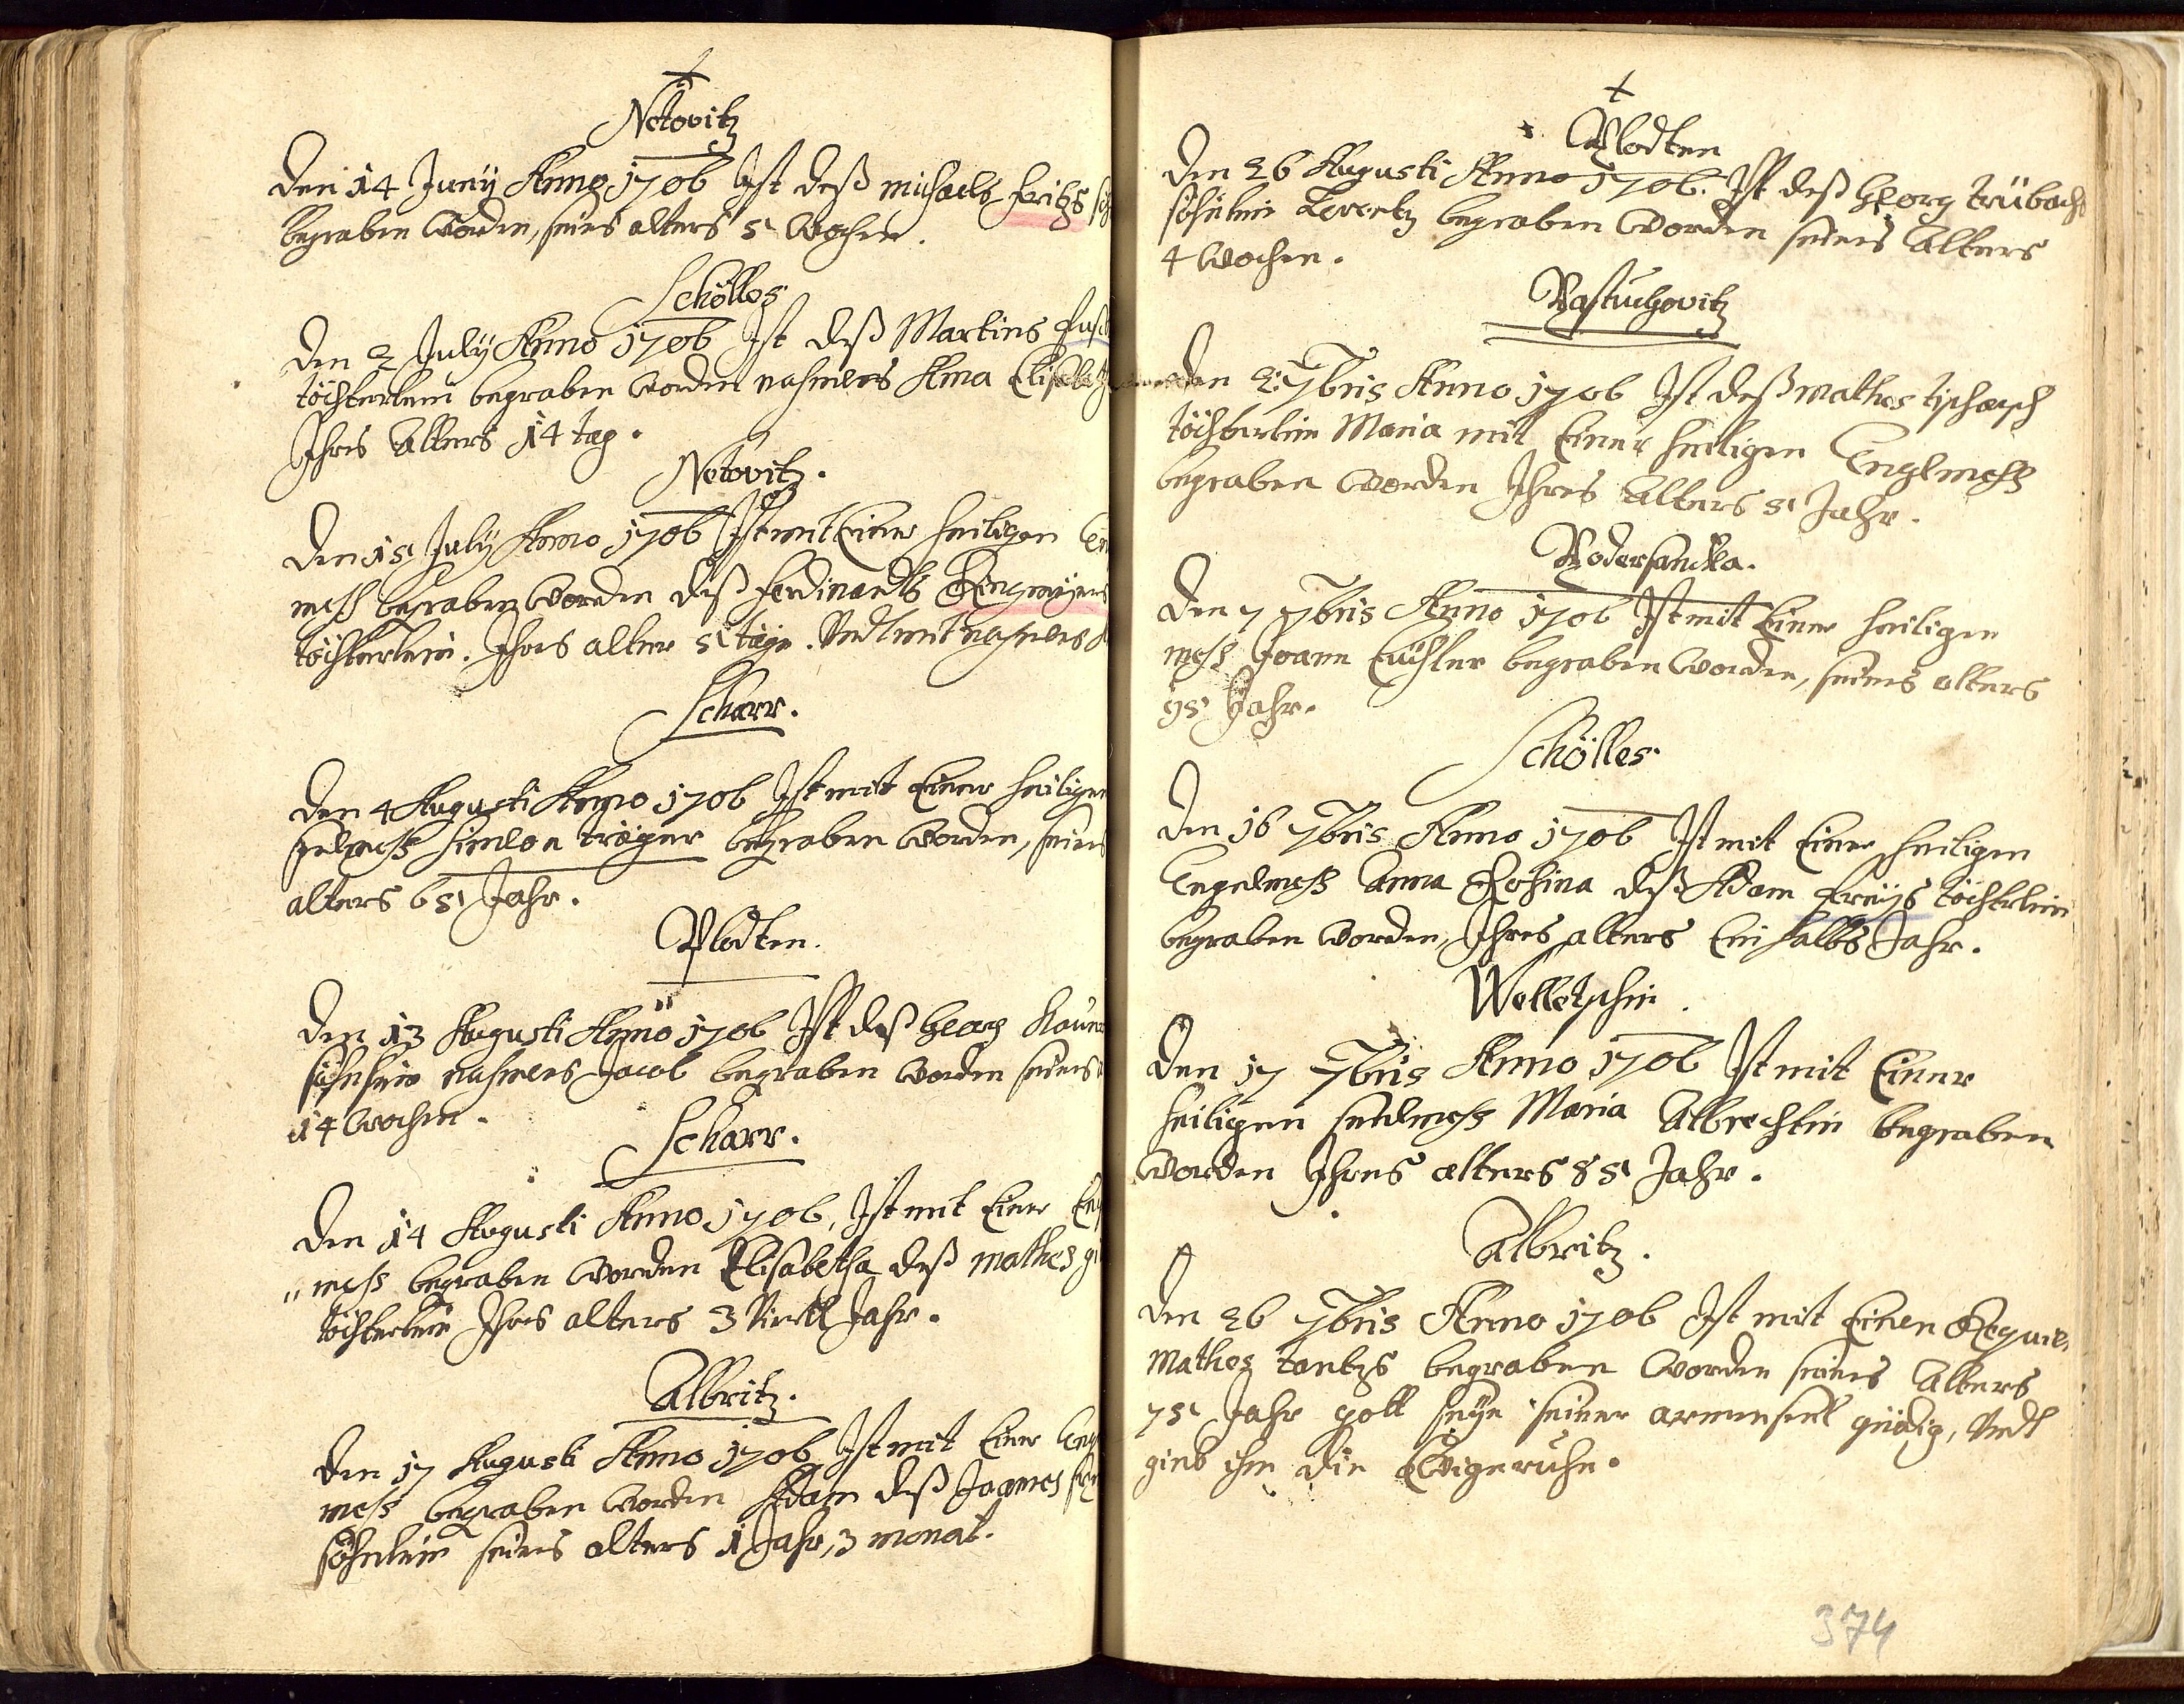 Netovitz
Den 14 Juny Anno 1706 Ist deß michaels fritzs
begraben worden, seines alters 5 Wochen.
Schölles
Den 2 July Anno 1706 Ist deß Martins
töchterlein begraben worden nahmens Anna Elisabeth
Ihres Alters 14 tag.
Netovitz.
Den 15 July Anno 1706 Ist mit Einer heiligen
meß begraben worden deß ferdinandts Ringmeyers
töchterlein. Ihres alter 5 täge. Undt mit nahmens
Scharr.
Den 4 Augusti Anno 1706 Ist mit Einer heiligen
seelmeß Simon träger begraben worden, seines
alters 65 Jahr.
Plodten.
Den 13 Augusti Anno 1706 Ist deß Georg
söhnlein nahmens Jacob begraben worden seines
14 wochen.
Scharr.
Den 14 Augusti Anno 1706, Ist mit Einer
meß begraben worden Elisabetha deß mathes
töchterlein Ihres alters 3 Viertl Jahr.
Albritz.
Den 17 Augusti Anno 1706 Ist mit Einer
meß begraben worden Adam deß Joannes
söhnlein seines alters 1 Jahr, 3 monat.
Plodten
Den 26 Augusti Anno 1706. Ist deß Georg trübachs
söhnlein Lorentz begraben worden seines Alters
4 wochen.
Wastuchovitz
Den 2 7bris Anno 1706 Ist deß mathes
töchterlein Maria mit Einer heiligen Englmeß
begraben worden Ihres Alters 5 Jahr.
Podersancka.
Den 7 7bris Anno 1706 Ist mit Einer heiligen
meß Joann begraben worden, seines alters
95 Jahr.
Schölles
Den 16 7bris Anno 1706 Ist mit Einer heiligen
Engelmeß Anna Rosina deß Adam freÿs töchterlein
begraben worden, Ihres alters Ein halbs Jahr.
Welletschin.
Den 17 7bris Anno 1706 Ist mit Einer
heiligen seelmeß Maria Albrechtin begraben
worden Ihres alters 85 Jahr.
Albritz.
Den 26 7bris Anno 1706 Ist mit Einen Requie,
Mathes begraben worden seines Alters
75 Jahr gott seye seiner armenseel gnädig, Undt
gieb ihm die Ewige ruhe.
374